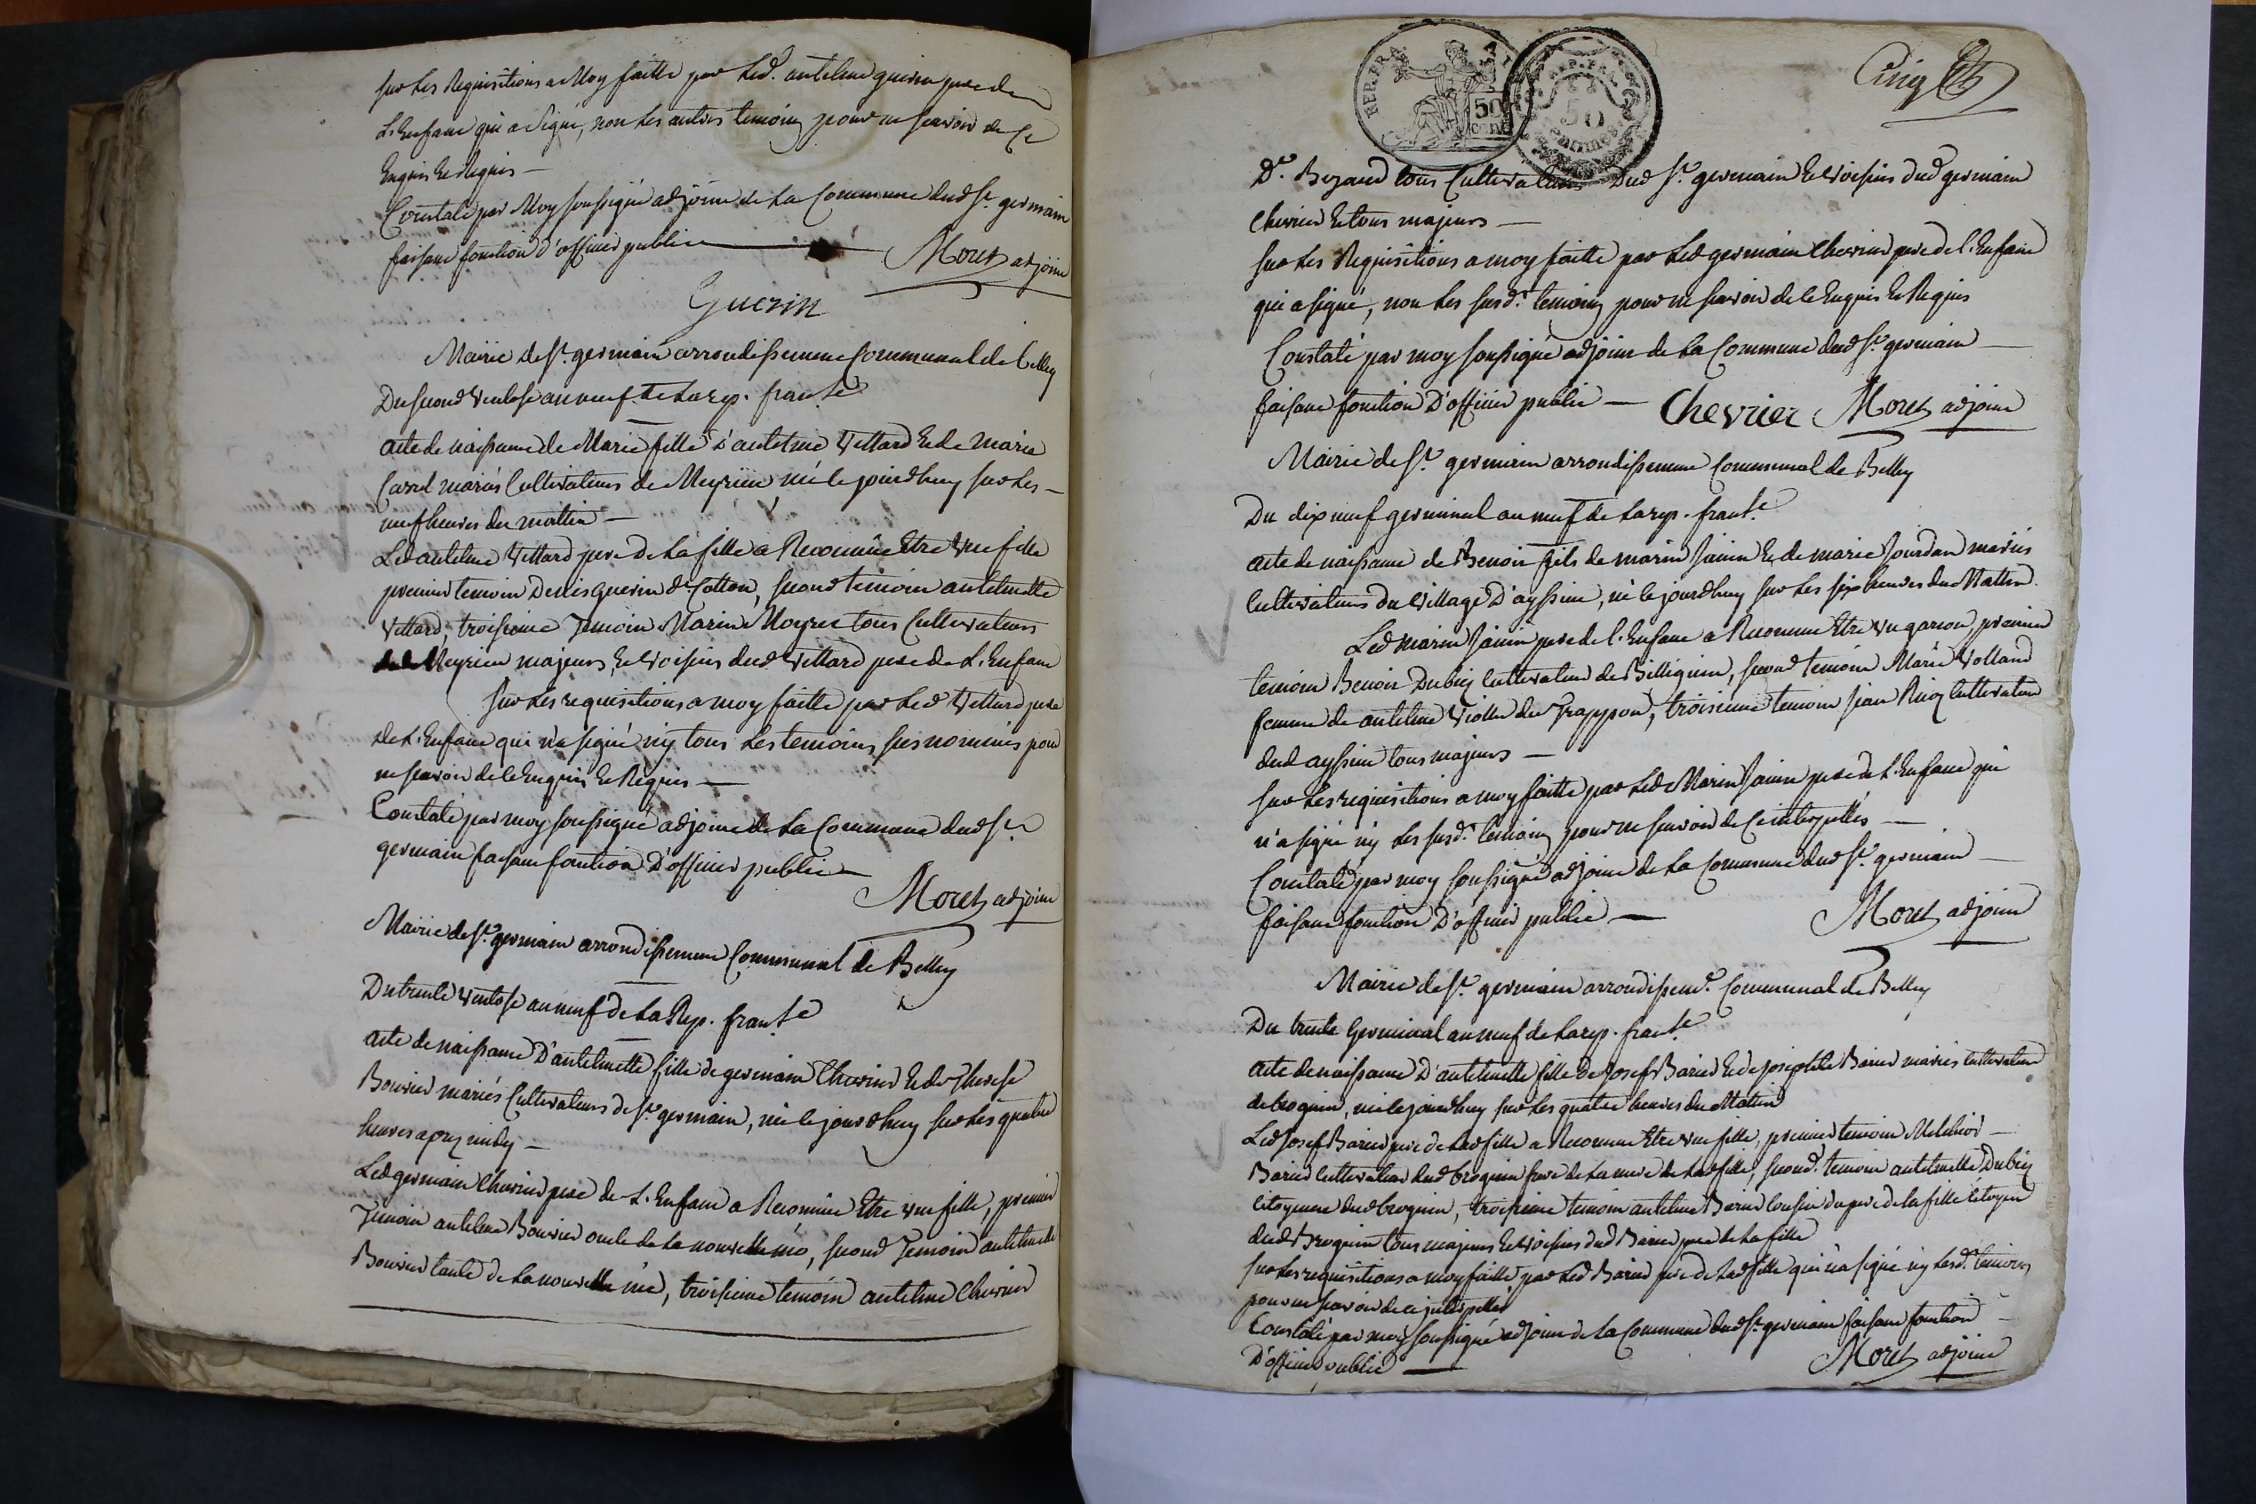 sur les Requisitions a Moy faitte par led. antelme guerin pere de
L'Enfant qui a Signé, non les autres temoins pour ne scavoir de ce
Enquis Et Requis —
Constaté par Moy soussigné adjoint de La Commune dud St. germain
faisant fonction d'officier public — Moret adjoint
Guerin
Mairie de St. germain arrondissement Communal de Belley
Du second Ventose an neuf de La rep. franse
acte de naissance de Marie fille d'antelme Vettard Et de Marie
Carrel mariés Cultivateurs de Meyrieu née le jourdhuy sur les —
neuf heures du mattin —
Led antelme Vettard pere de La fille a Reconnüe Etre Une fille
premier temoin Denis Guerin dt Cotton, second temoin antelmette
Vettard, troisieme Temoin Marin Moyret tous Cultivateurs
de Meyrieu majeurs Et Voisins dud Vettard pere de L'Enfant
Sur les requisitions a moy faitte par Led Vettard pere
de L'Enfant qui n'a signé n'y tous Les temoins susnommés pour
ne scavoir de le Enquis Et Requis —
Constaté par moy soussigné adjoint de La Commune dud St.
germain faisant fonction D'officier public —
Moret adjoint
Mairie de St. germain arrondissement Communal de Belley
Du trente Ventose an neuf de La Rep. franse
acte de naissance D'antelmette fille de germain Chevrier Et de Therese
Bouvier mariés Cultivateurs de St. germain, née le jourdhuy sur les quatre
heures aprez midy —
Led germain Chevrier pere de L'Enfant a Reconnüe Etre une fille, premier
Temoin antelme Bouvier oncle de La nouvelle née, second Temoin antelmette
Bouvier tante de La nouvelle née, troisieme temoin antelme Chevrier
REP. FRA.
50
cent
REP. FRA.
50
centimes
Cinq
Dt. Bezard tous Cultivateurs Dud St. germain Et Voisins dud germain
Chevrier Et tous majeurs —
Sur Les Requisitions a moy faitte par Led germain Chevrier pere de L'Enfant
qui a signé, non Les susd. temoins pour ne scavoir de le Enquis Et Requis
Constaté par moy soussigné adjoint de La Commune dud St. germain —
faisant fonction D'officier public — Chevrier Moret adjoint
Mairie de St. germain arrondissement Communal de Belley
Du dix neuf germinal an neuf de La rep. franse
acte de naissance de Benoit fils de marin Janin Et de marie Jourdan mariés
Cultivateurs du Village D'ayssieu, né le jourdhuy sur les six heures du Mattin
Led marin Janin pere de L'Enfant a Reconnu Etre un garcon, premier
temoin Benoit Dubiez Cultivateur de Billignin, second temoin Marie Volland
femme de antelme Viollet du Trappon, troisieme temoin Jean Cultivateur
dud ayssieu tous majeurs —
Sur Les requisitions a moy faitte par Led Marin Janin pere de L'Enfant qui
n'a signé n'y les susd. temoins pour ne scavoir de Ce interpellés —
Constaté par moy soussigné adjoint de La Commune dud St. germain —
faisant fonction D'officier public — Moret adjoint
Mairie de St. germain arrondissemt. Communal de Belley
Du trente Germinal an neuf de La rep. franse
acte de naissance D'antelmette fille de Josef Barin Et de Josephte Barin mariés Cultivateurs
de brognin, née le jourdhuy sur les quatre heures du Mattin
Led Josef Barin pere de Lad fille a Reconnu Etre une fille, premier temoin Melchior —
Barin Cultivateur dud brognin frere de La mere de Lad fille, second temoin antelmette Dubiez
citoyenne dud brognin, troisieme temoin antelme Barin Cousin du pere de La fille Citoyen
dud Brognin tous majeurs Et Voisins dud Barin pere de La fille
Sur Les requisitions a moy faitte par Led Barin pere de Lad fille qui n'a signé n'y Lesd. temoins
pour ne scavoir de ce interpellés
Constaté par moy soussigné adjoint de La Commune dud St. germain faisant fonction —
D'officier public — Moret adjoint